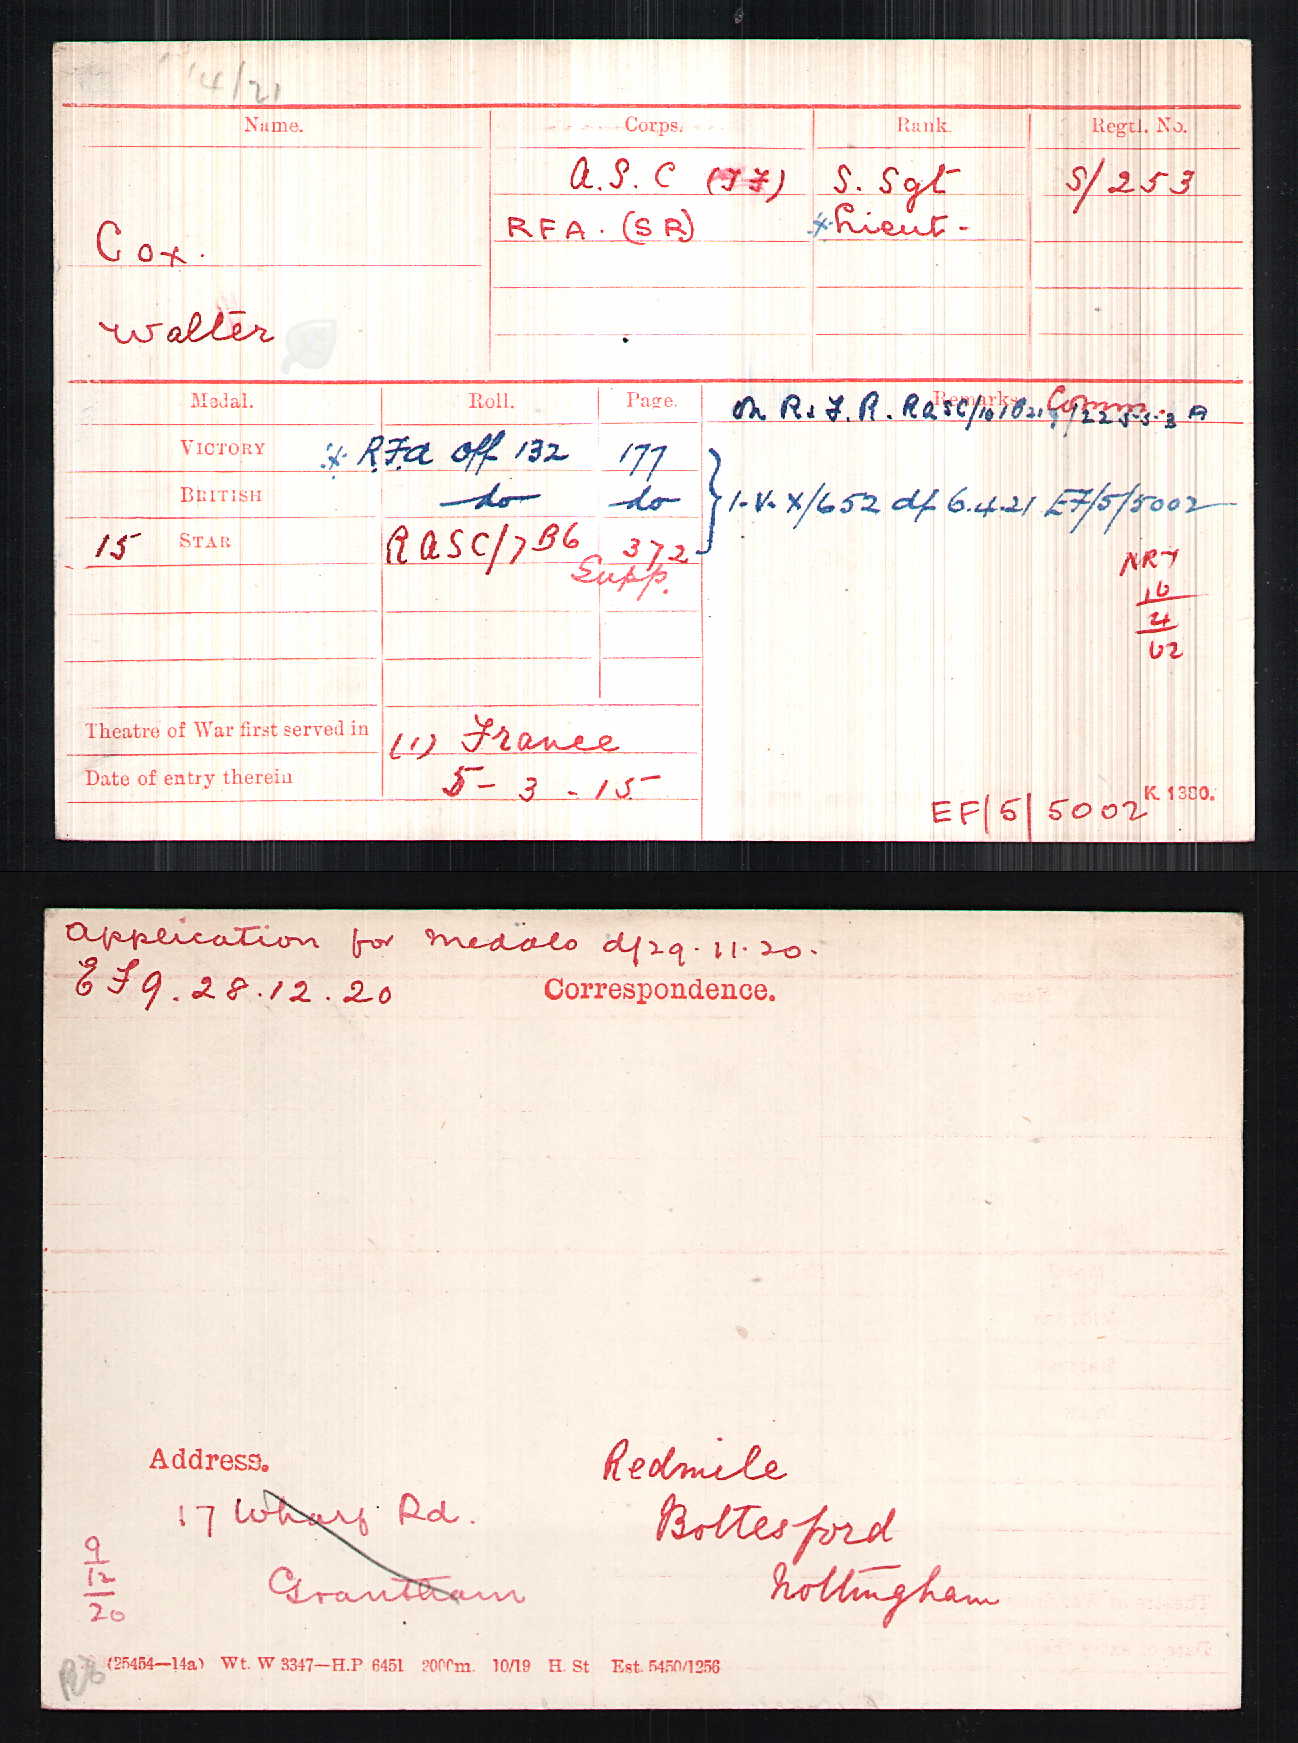 4/21
Name. Corps. Rank. Regtl. No.
A.S.C (TF) S. Sgt S/253
RFA. (SR) *Lieut-
Cox.
Walter
Medal. Roll. Page. Remarks. Comm.
On R.I.F.R. RASC/101B21 A
VICTORY * RFA Off 132 177
BRITISH do do I.V. X/652 d/ 6.4.21 EF/5/5002
15 STAR RASC/7 B6 372
Supp.
NRY
16
4
62
Theatre of War first served in (1) France
Date of entry therein 5-3-15
K. 1380.
EF/5/5002
Application for medals d/29.11.20.
EF9.28.12.20 Correspondence.
Address.
Redmile
17 Wharf Rd. Bottesford
Grantham Nottingham
9
12
20
(25454—14a) Wt. W 3347—H.P. 6451 2000m. 10/19 H. St Est. 5450/1256